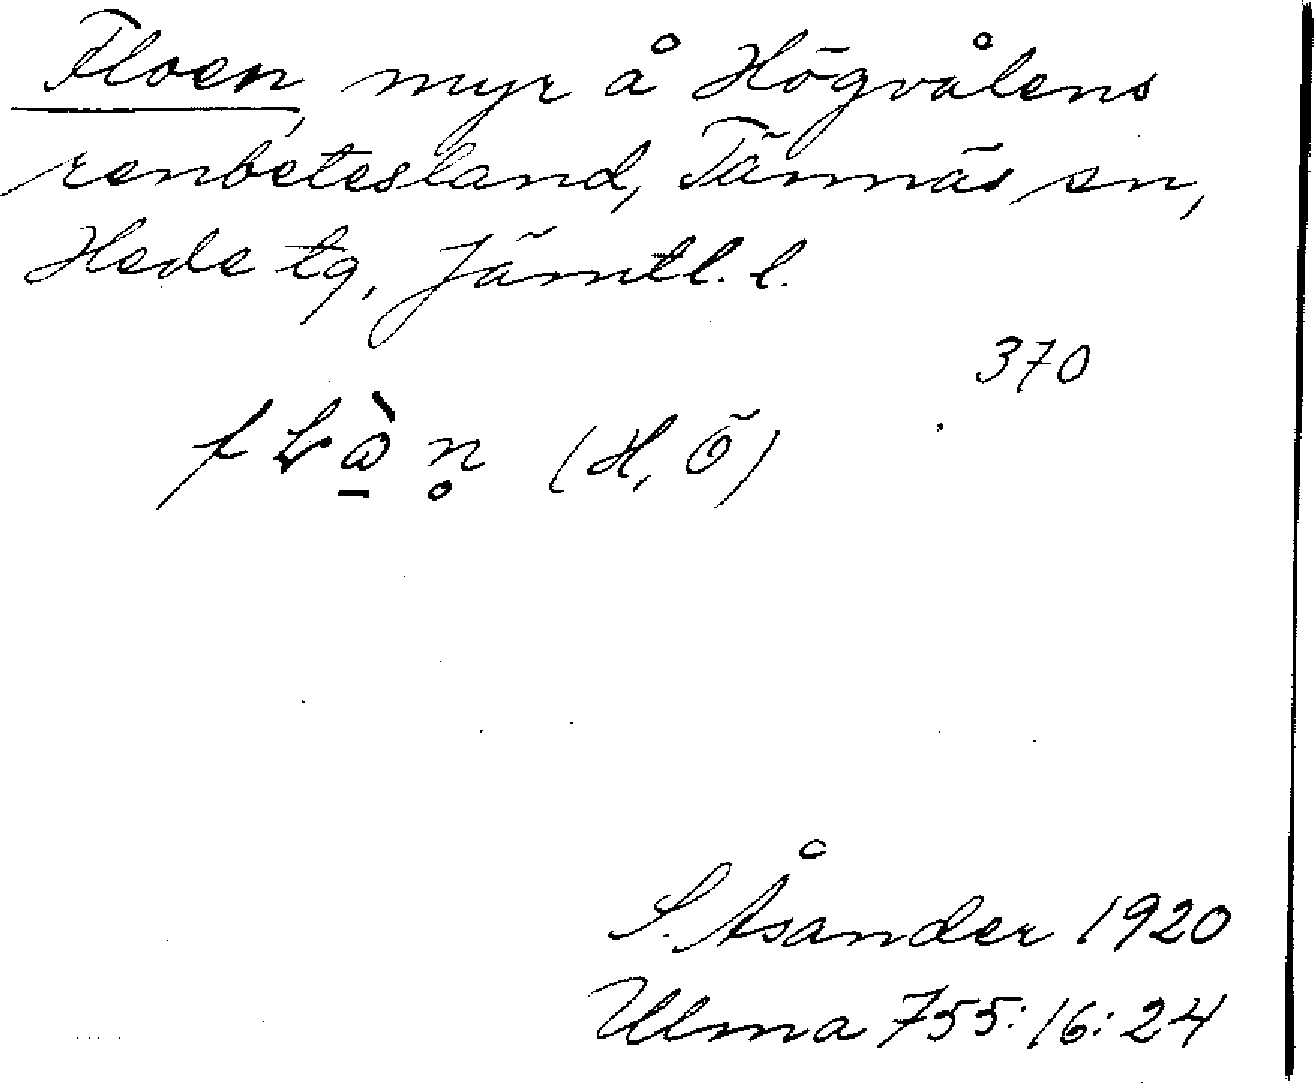 Floen, myr å Högvålens
renbetesland, Tännäs sn,
Hede tg, Jämtl. l.
370
(H, Ö)
S. Åsander 1920
Ulma 755:16:24